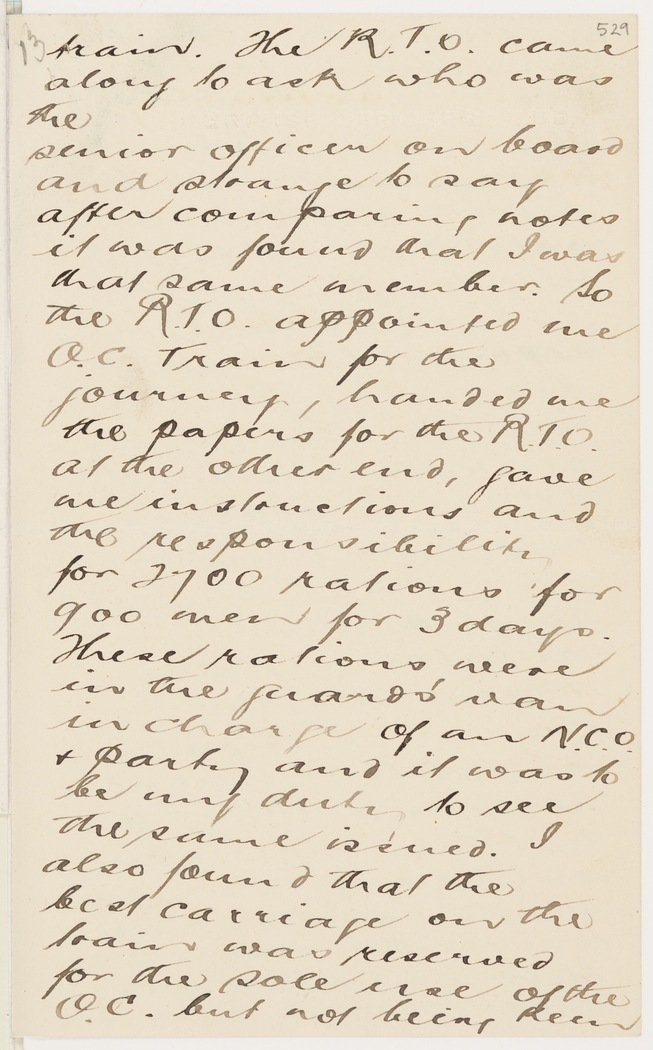 529
13
train. The R.T.O. came
along to ask who was
the
senior officer on board
and strange to say
after comparing notes
it was found that I was
that same member. So
the R.T.O. appointed me
O.C. Train for the
journey, handed me
the papers for the R.T.O.
at the other end, gave
me instructions and
the responsibility
for 2700 rations for
900 men for 3 days.
These rations were
in the guards' van
in charge of an N.C.O.
+ party and it was to
be my duty to see
the same issued. I
also found that the
best carriage on the
train was reserved
for the sole use of the
O.C. but not being keen